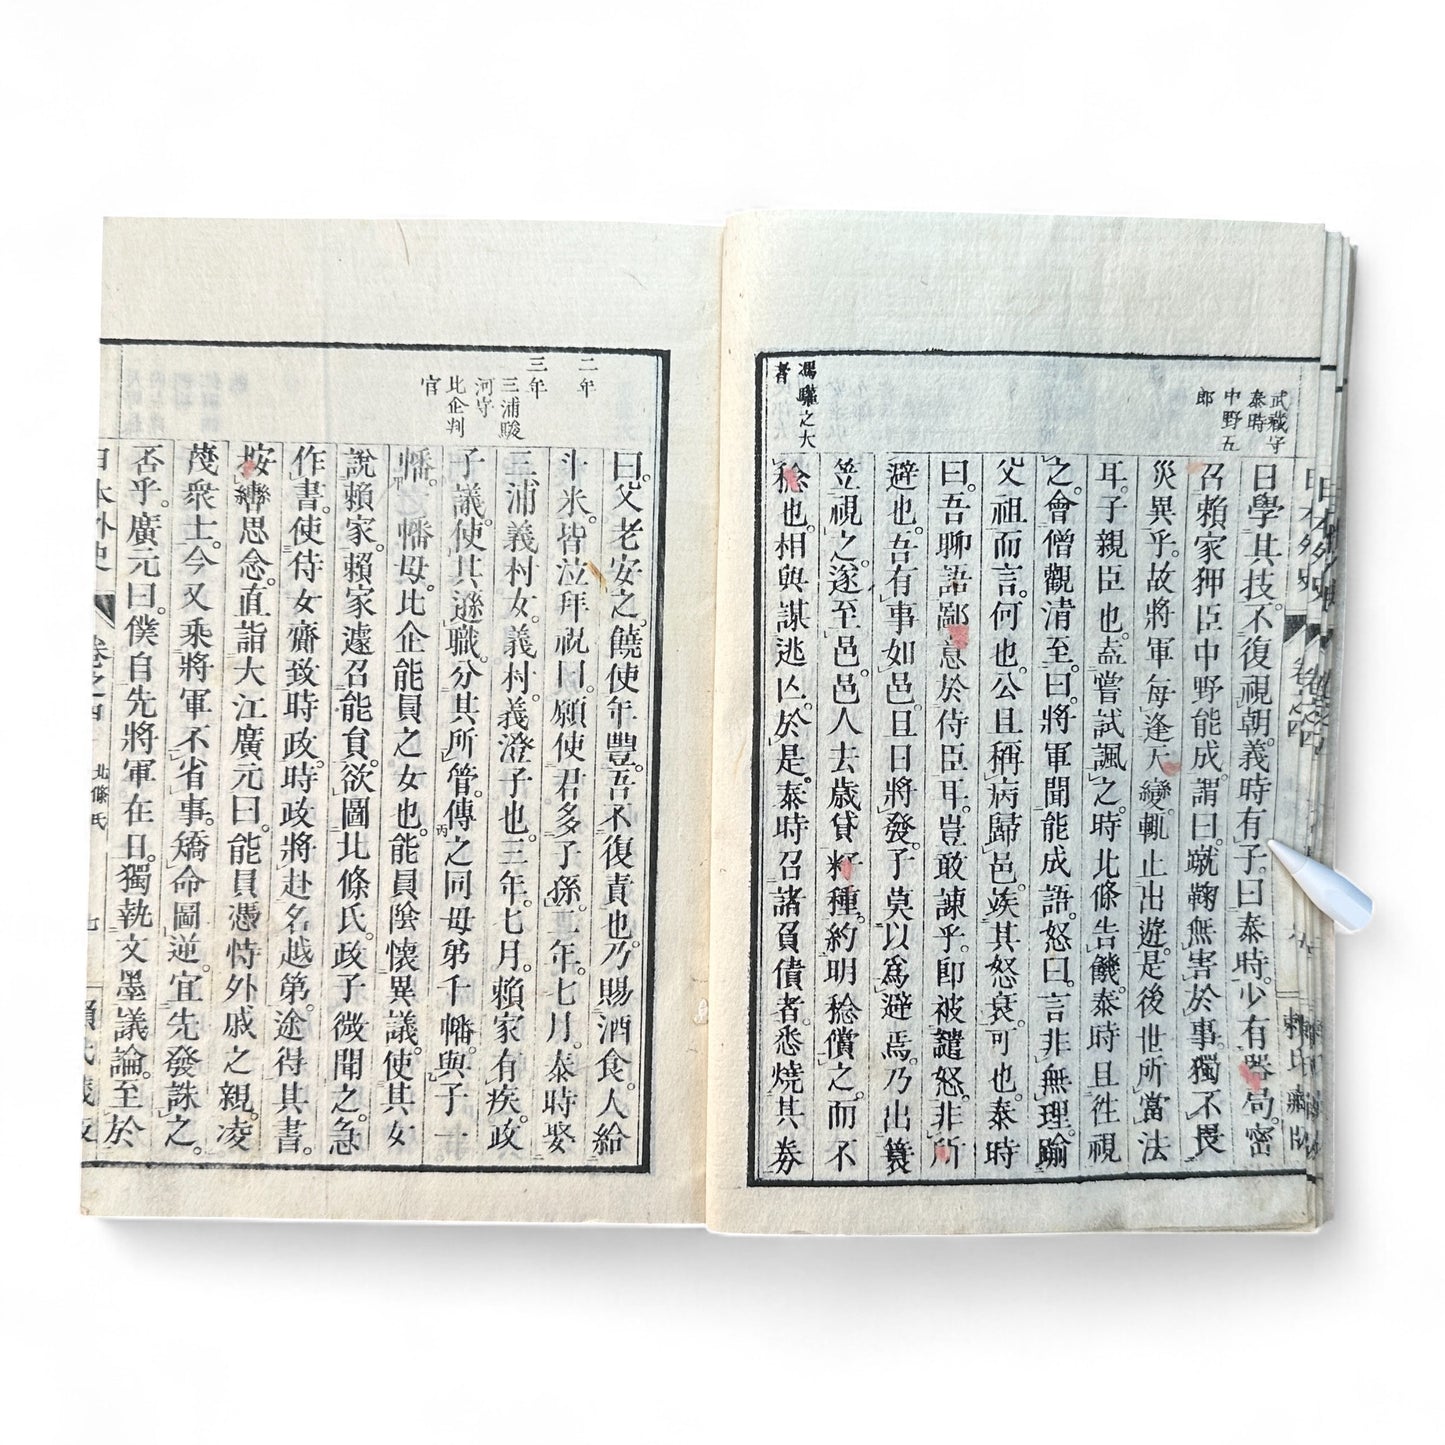 武藏守
泰時
中野五
郎
馮驩之大
者
日學其技。不復視朝。義時有子。曰泰時。少有器局。密
召賴家狎臣中野能成。謂曰。蹴鞠無害於事。獨不畏
災異乎。故將軍每逢天變。輒止出遊。是後世所當法
耳。子親臣也。盍嘗試諷之。時北條告饑。泰時且往視
之。會僧觀清至。曰。將軍聞能成語。怒曰。言非無理。踰
父祖而言。何也。公且稱病歸邑。竢其怒衰可也。泰時
曰。吾聊語鄙意於侍臣耳。豈敢諫乎。即被譴怒。非所
避也。吾有事如邑。且日將發。子莫以爲避焉。乃出蓑
笠視之。遂至邑。邑人去歲貸籽種。約明稔償之。而不
稔也。相與謀逃亡。於是。泰時召諸負債者。悉燒其券
二年
三年
三浦駿
河守
比企判
官
曰。父老安之。饒使年豐。吾不復責也。乃賜酒食。人給
斗米。皆泣拜祝曰。願使君多子孫。二年。七月。泰時娶
三浦義村女。義村。義澄子也。三年。七月。賴家有疾。政
子議。使其遜職。分其所管。傳之同母弟千幡。與子一
幡。一幡母。比企能員之女也。能員陰懷異議。使其女
說賴家。賴家遽召能員。欲圖北條氏。政子微聞之。急
作書。使侍女齎致時政。時政將赴名越第。途得其書。
按轡思念。直詣大江廣元曰。能員憑恃外戚之親。凌
蔑衆士。今又乘將軍不省事。矯命圖逆。宜先發誅之。
否乎。廣元曰。僕自先將軍在日。獨執文墨議論。至於
日本外史
卷之四
北條氏
七
賴氏藏版